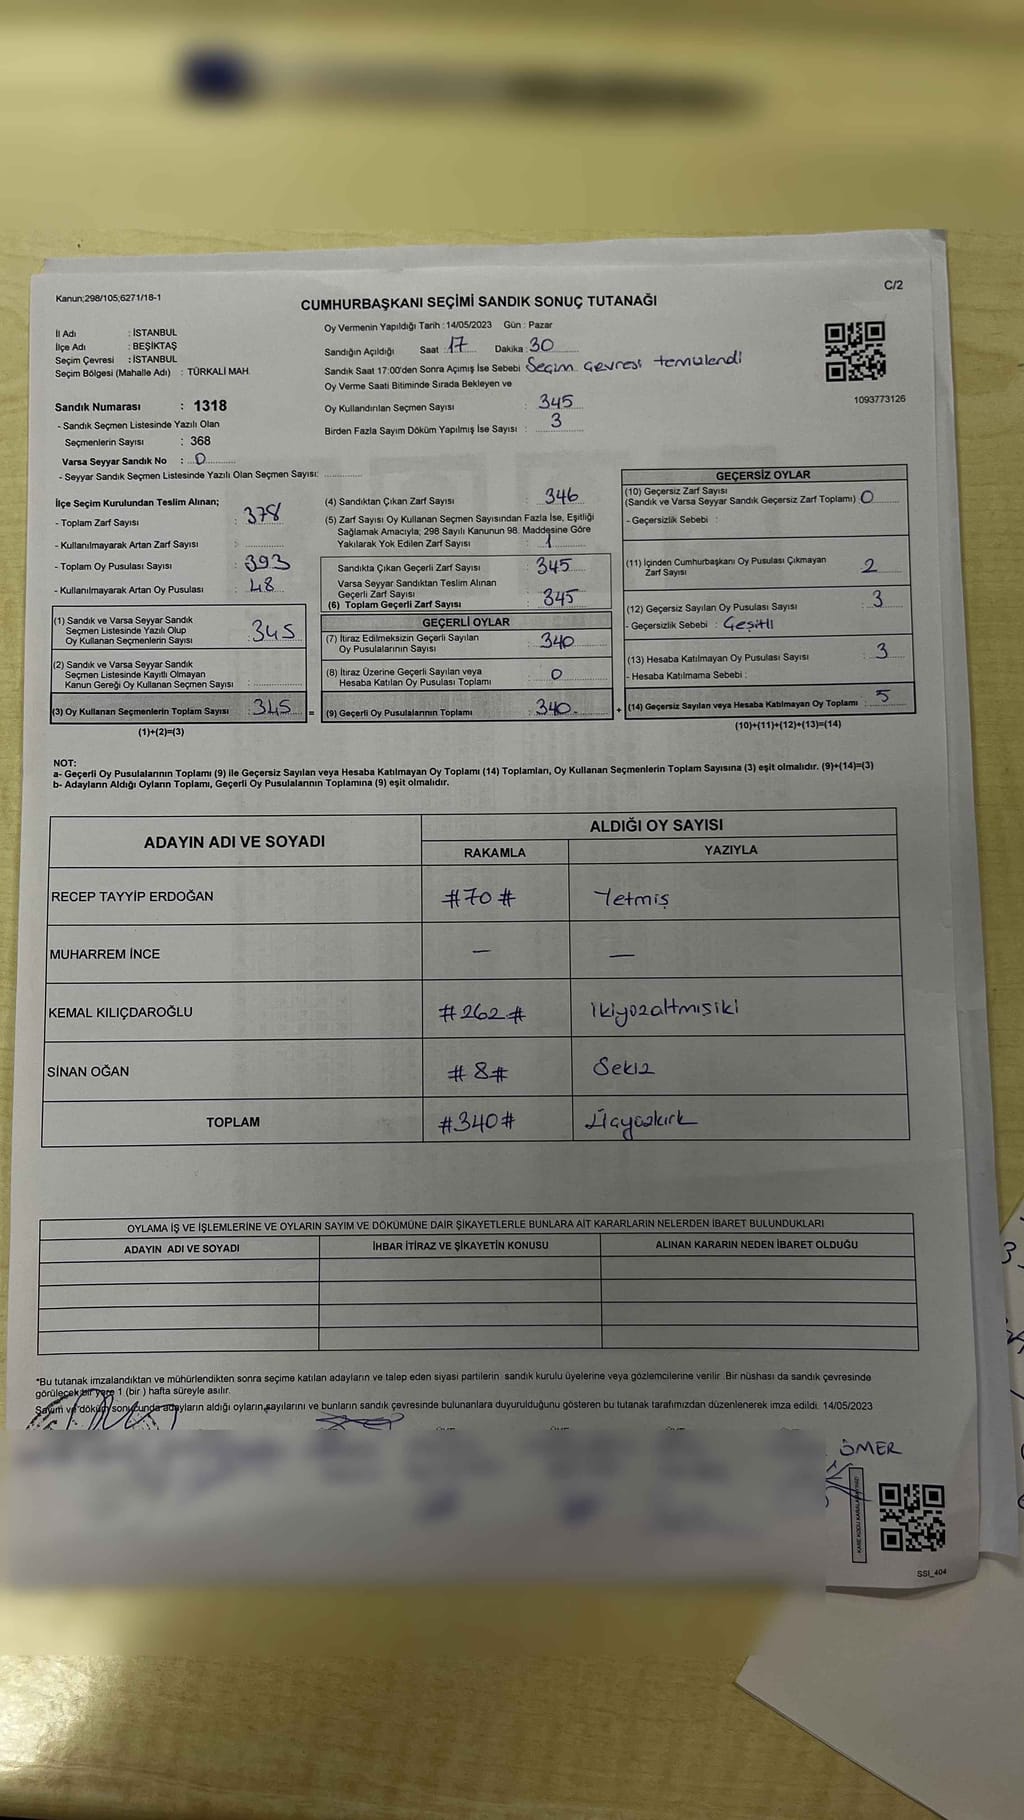 Kanun;298/105;6271/18-1
C/2
CUMHURBAŞKANI SEÇİMİ SANDIK SONUÇ TUTANAĞI
İl Adı : İSTANBUL
İlçe Adı : BEŞİKTAŞ
Seçim Çevresi : İSTANBUL
Seçim Bölgesi (Mahalle Adı) : TÜRKALİ MAH.
Sandık Numarası : 1318
- Sandık Seçmen Listesinde Yazılı Olan
Seçmenlerin Sayısı : 368
Varsa Seyyar Sandık No : 0
- Seyyar Sandık Seçmen Listesinde Yazılı Olan Seçmen Sayısı:
Oy Vermenin Yapıldığı Tarih : 14/05/2023 Gün : Pazar
Sandığın Açıldığı Saat : 17 Dakika : 30
Sandık Saat 17:00'den Sonra Açımış İse Sebebi Seçim çevresi temizlendi
Oy Verme Saati Bitiminde Sırada Bekleyen ve
Oy Kullandırılan Seçmen Sayısı : 345
Birden Fazla Sayım Döküm Yapılmış İse Sayısı : 3
1093773126
İlçe Seçim Kurulundan Teslim Alınan;
- Toplam Zarf Sayısı : 378
- Kullanılmayarak Artan Zarf Sayısı :
- Toplam Oy Pusulası Sayısı : 393
- Kullanılmayarak Artan Oy Pusulası : 48
(1) Sandık ve Varsa Seyyar Sandık
Seçmen Listesinde Yazılı Olup
Oy Kullanan Seçmenlerin Sayısı : 345
(2) Sandık ve Varsa Seyyar Sandık
Seçmen Listesinde Kayıtlı Olmayan
Kanun Gereği Oy Kullanan Seçmen Sayısı :
(3) Oy Kullanan Seçmenlerin Toplam Sayısı : 345 =
(1)+(2)=(3)
(4) Sandıktan Çıkan Zarf Sayısı : 346
(5) Zarf Sayısı Oy Kullanan Seçmen Sayısından Fazla İse, Eşitliği
Sağlamak Amacıyla; 298 Sayılı Kanunun 98. Maddesine Göre
Yakılarak Yok Edilen Zarf Sayısı : 1
Sandıkta Çıkan Geçerli Zarf Sayısı : 345
Varsa Seyyar Sandıktan Teslim Alınan
Geçerli Zarf Sayısı :
(6) Toplam Geçerli Zarf Sayısı : 345
GEÇERLİ OYLAR
(7) İtiraz Edilmeksizin Geçerli Sayılan
Oy Pusulalarının Sayısı : 340
(8) İtiraz Üzerine Geçerli Sayılan veya
Hesaba Katılan Oy Pusulası Toplamı : 0
(9) Geçerli Oy Pusulalarının Toplamı : 340 +
GEÇERSİZ OYLAR
(10) Geçersiz Zarf Sayısı
(Sandık ve Varsa Seyyar Sandık Geçersiz Zarf Toplamı) : 0
- Geçersizlik Sebebi :
(11) İçinden Cumhurbaşkanı Oy Pusulası Çıkmayan
Zarf Sayısı : 2
(12) Geçersiz Sayılan Oy Pusulası Sayısı : 3
- Geçersizlik Sebebi : Çeşitli
(13) Hesaba Katılmayan Oy Pusulası Sayısı : 3
- Hesaba Katılmama Sebebi :
(14) Geçersiz Sayılan veya Hesaba Katılmayan Oy Toplamı : 5
(10)+(11)+(12)+(13)=(14)
NOT:
a- Geçerli Oy Pusulalarının Toplamı (9) ile Geçersiz Sayılan veya Hesaba Katılmayan Oy Toplamı (14) Toplamları, Oy Kullanan Seçmenlerin Toplam Sayısına (3) eşit olmalıdır. (9)+(14)=(3)
b- Adayların Aldığı Oyların Toplamı, Geçerli Oy Pusulalarının Toplamına (9) eşit olmalıdır.
ADAYIN ADI VE SOYADI ALDIĞI OY SAYISI
RAKAMLA YAZIYLA
RECEP TAYYİP ERDOĞAN #70# Yetmiş
MUHARREM İNCE — —
KEMAL KILIÇDAROĞLU #262# ikiyüzaltmışiki
SİNAN OĞAN #8# Sekiz
TOPLAM #340# Üçyüzkırk
OYLAMA İŞ VE İŞLEMLERİNE VE OYLARIN SAYIM VE DÖKÜMÜNE DAİR ŞİKAYETLERLE BUNLARA AİT KARARLARIN NELERDEN İBARET BULUNDUKLARI
ADAYIN ADI VE SOYADI İHBAR İTİRAZ VE ŞİKAYETİN KONUSU ALINAN KARARIN NEDEN İBARET OLDUĞU
*Bu tutanak imzalandıktan ve mühürlendikten sonra seçime katılan adayların ve talep eden siyasi partilerin sandık kurulu üyelerine veya gözlemcilerine verilir. Bir nüshası da sandık çevresinde
görülecek bir yere 1 (bir ) hafta süreyle asılır.
Sayım ve döküm sonucunda adayların aldığı oyların sayılarını ve bunların sandık çevresinde bulunanlara duyurulduğunu gösteren bu tutanak tarafımızdan düzenlenerek imza edildi. 14/05/2023
ÖMER
SSI_404